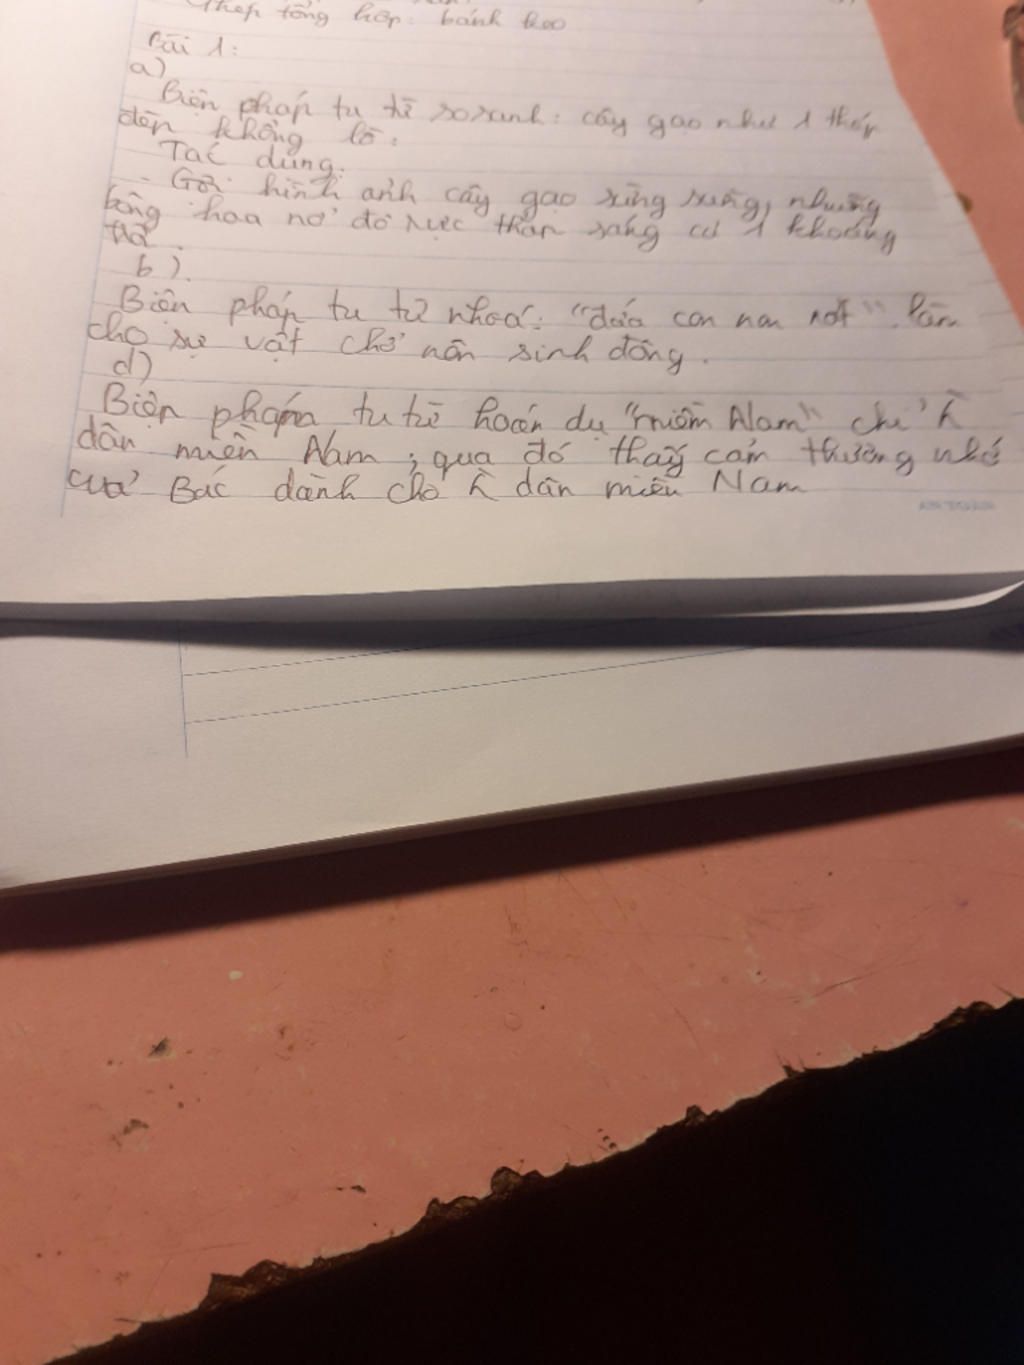 Ghép tổng hợp: bánh kẹo
Bài 1:
a)
Biện pháp tu từ so sánh: cây gạo như 1 tháp
đèn khổng lồ.
Tác dụng.
- Gợi hình ảnh cây gạo sừng sững, những
bông hoa nở đỏ rực thắp sáng cả 1 khoảng
b).
Biện pháp tu từ nhoá: "đứa con non nớt". làm
cho sự vật chở nên sinh động.
d)
Biện pháp tu từ hoán dụ "miền Nam" chỉ
dân miền Nam, qua đó thấy cảm thương nhớ
của Bác dành cho dân miền Nam